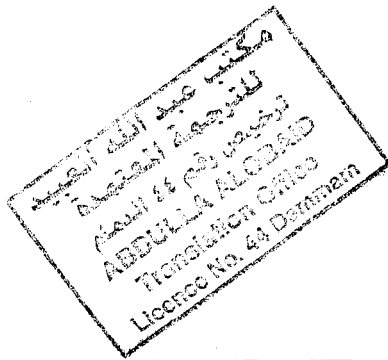 مكتب عبد الله العبيد
للترجمة المعتمدة
ترخيص رقم ٤٤ الدمام
ABDULLA ALOBAID
Translation Office
Licence No. 44 Dammam